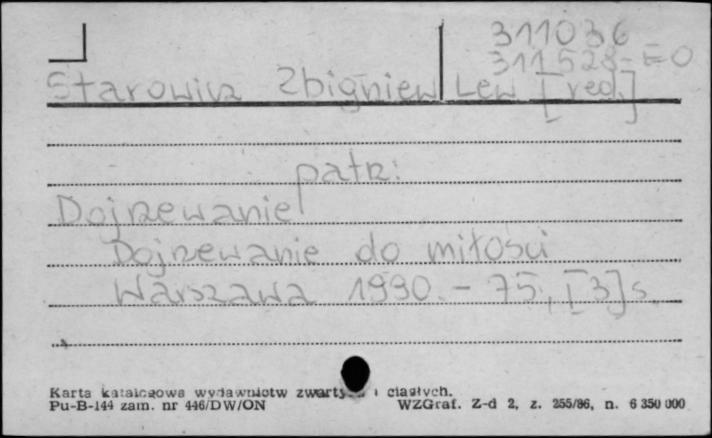 311036
311528-EO
Starowicz Zbigniew Lew [red.]
patrz:
Dojrzewanie
Dojrzewanie do miłości
Warszawa 1990. - 75, [3] s.
Karta katalogowa wydawnictw zwartych i ciągłych.
Pu-B-144 zam. nr 446/DW/ON WZGraf. Z-d 2, z. 255/86, n. 6 350 000